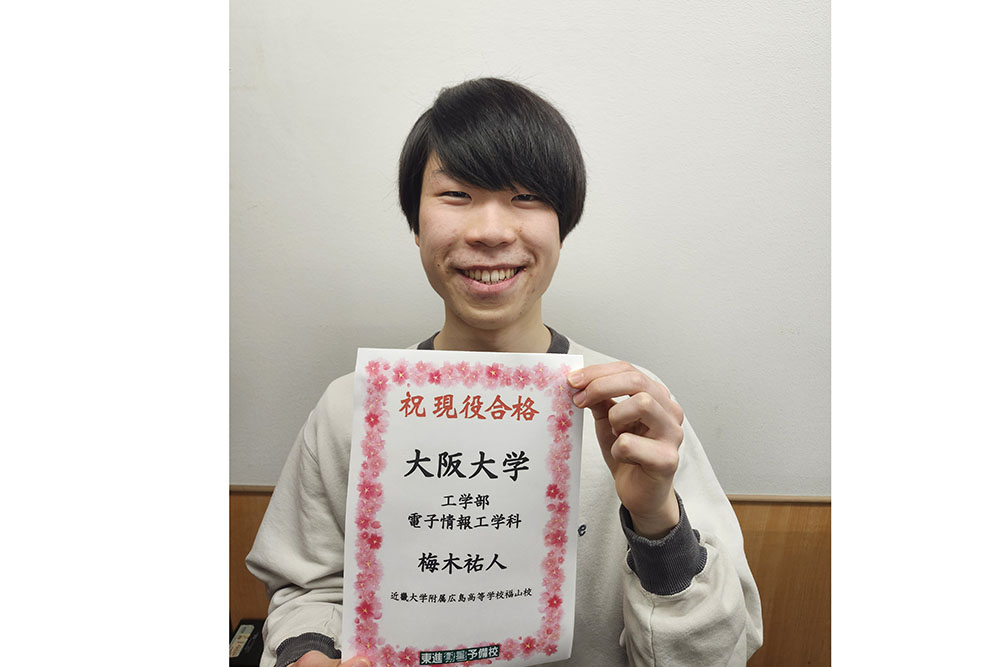 祝 現役合格
大阪大学
工学部
電子情報工学科
梅木祐人
近畿大学附属広島高等学校福山校
東進衛星予備校